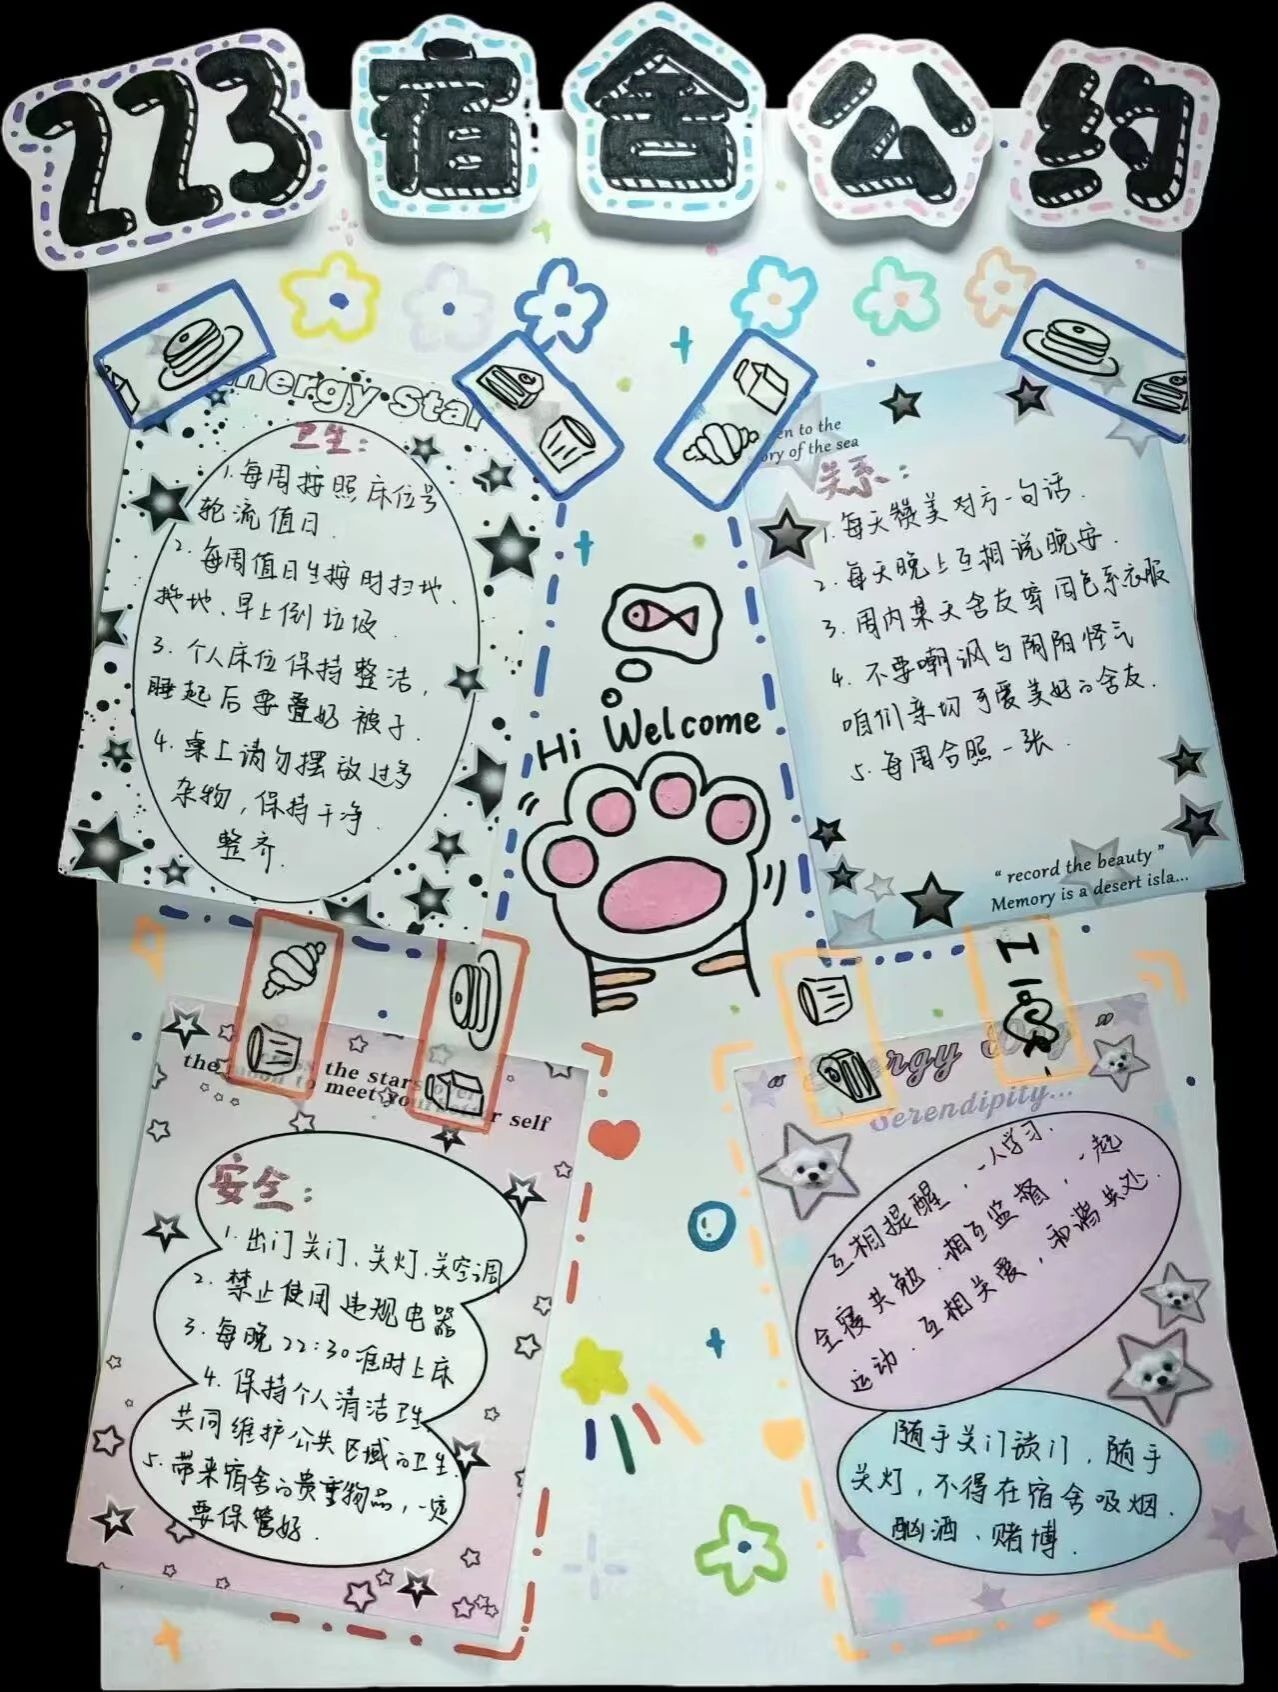 223宿舍公约
Energy Star
卫生：
1.每周按照床位号
轮流值日.
2.每周值日生按时扫地、
拖地、早上倒垃圾.
3.个人床位保持整洁，
睡起后要叠好被子.
4.桌上请勿摆放过多
杂物，保持干净.
整齐.
en to the
ory of the sea
关系：
1.每天赞美对方一句话.
2.每天晚上互相说晚安.
3.周内某天舍友穿同色系衣服
4.不要嘲讽与阴阳怪气
咱们亲切可爱美好的舍友.
5.每周合照一张.
“ record the beauty ”
Memory is a desert isla...
Hi Welcome
the stars over
to meet yourbetter self
安全：
1.出门关门、关灯、关空调
2.禁止使用违规电器
3.每晚22:30准时上床
4.保持个人清洁卫生
共同维护公共区域的卫生.
5.带来宿舍的贵重物品，一定
要保管好.
Serendipity...
互相提醒，一人学习.
全寝共勉.相互监督，一起
运动.互相关爱，和谐共处.
随手关门锁门，随手
关灯，不得在宿舍吸烟.
酗酒、赌博.